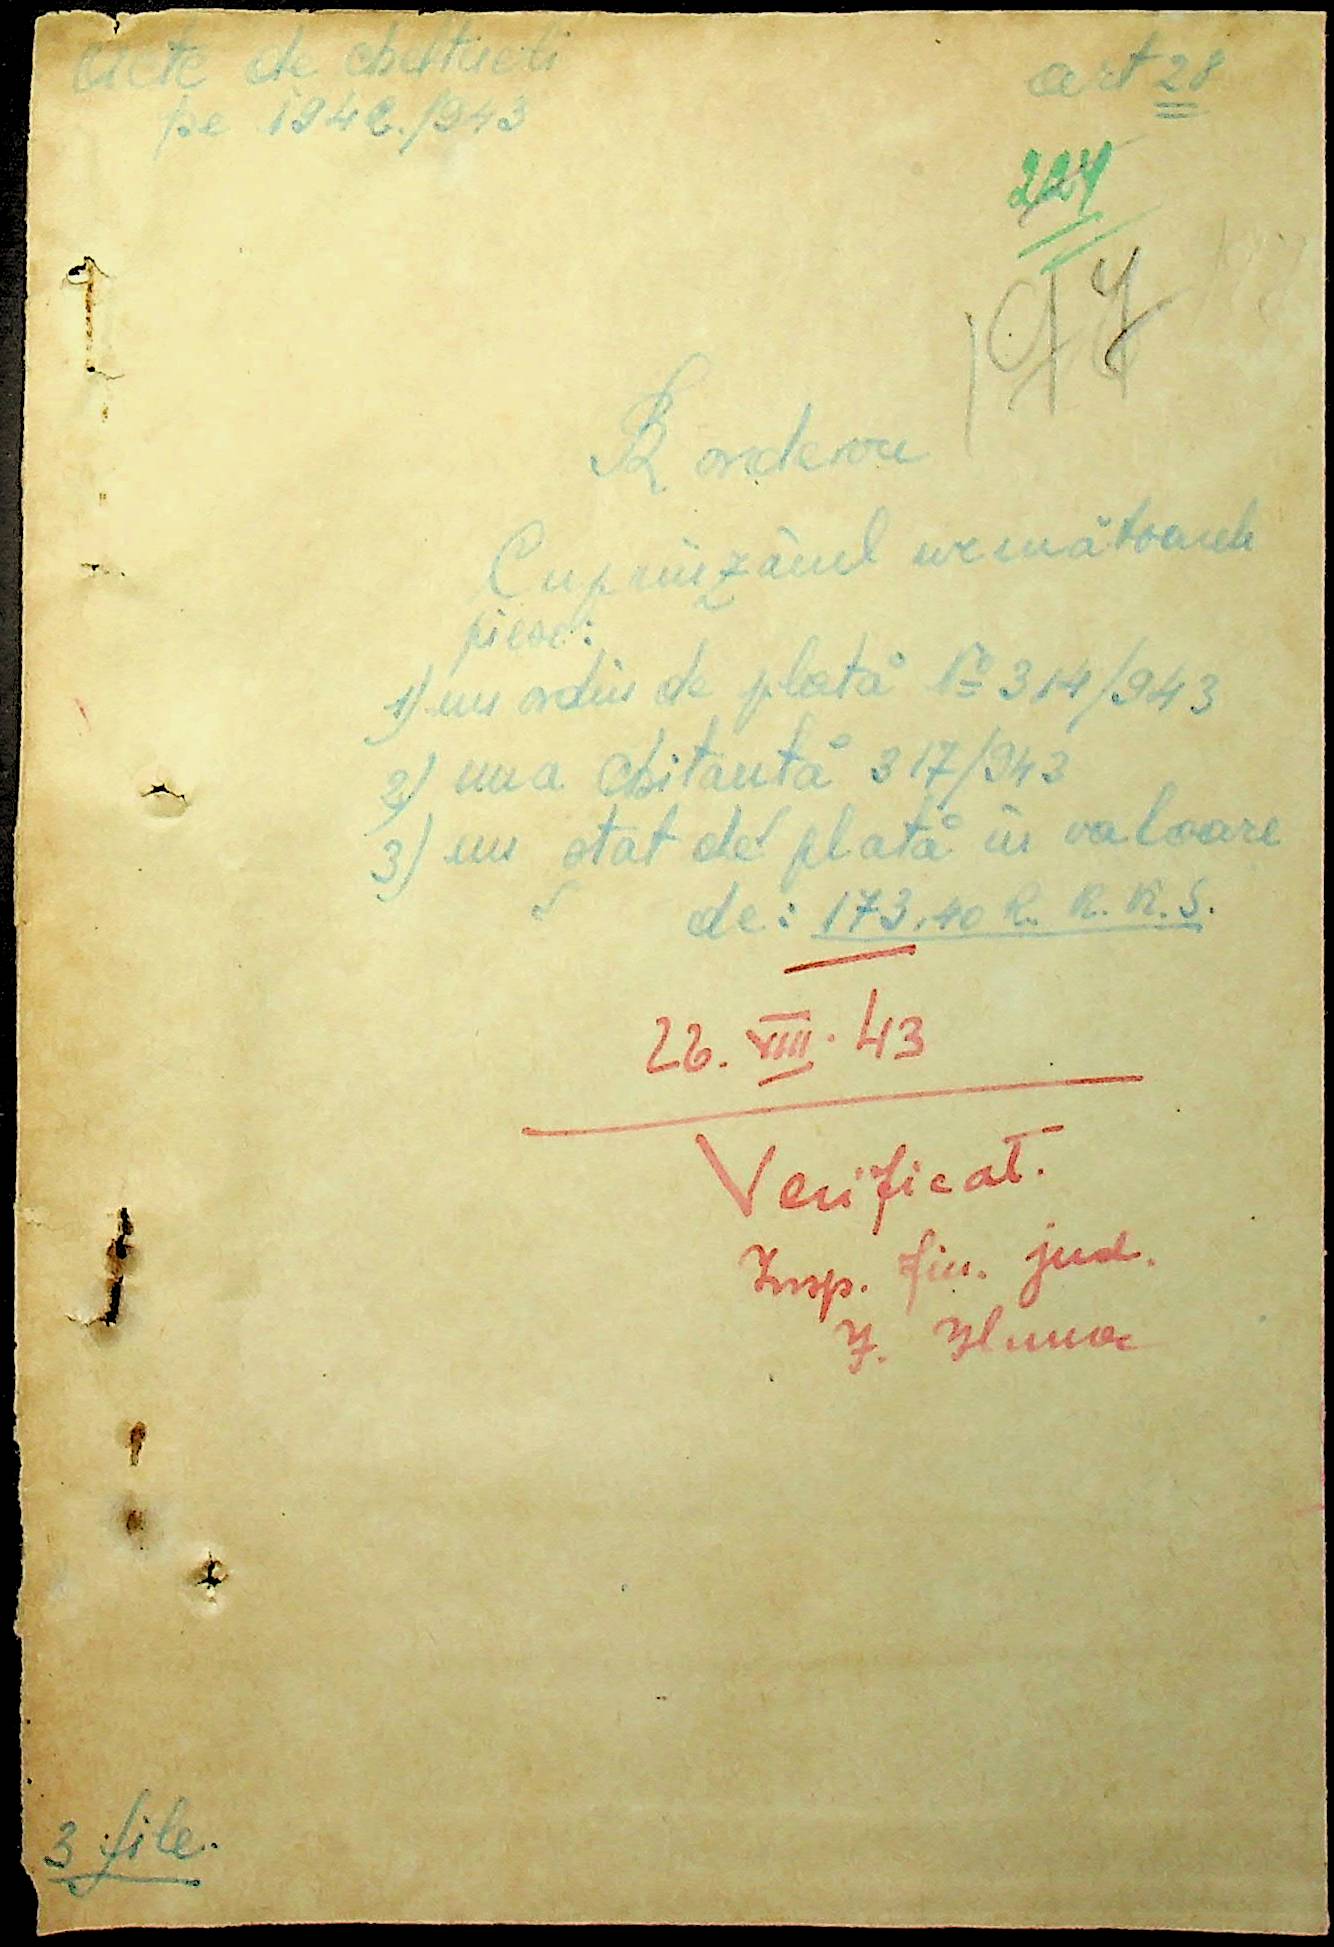 Acte de cheltueli
pe 1942/943
art 28
224
197
Borderou
Cuprinzând următoarele
piese:
1) un ordin de plată № 314/943
2) una chitantă 317/943
3) un stat de plată în valoare
de: 173,40 R. K. K. S.
22. VIII. 43
Verificat.
Insp. fin. jud.
3 file.